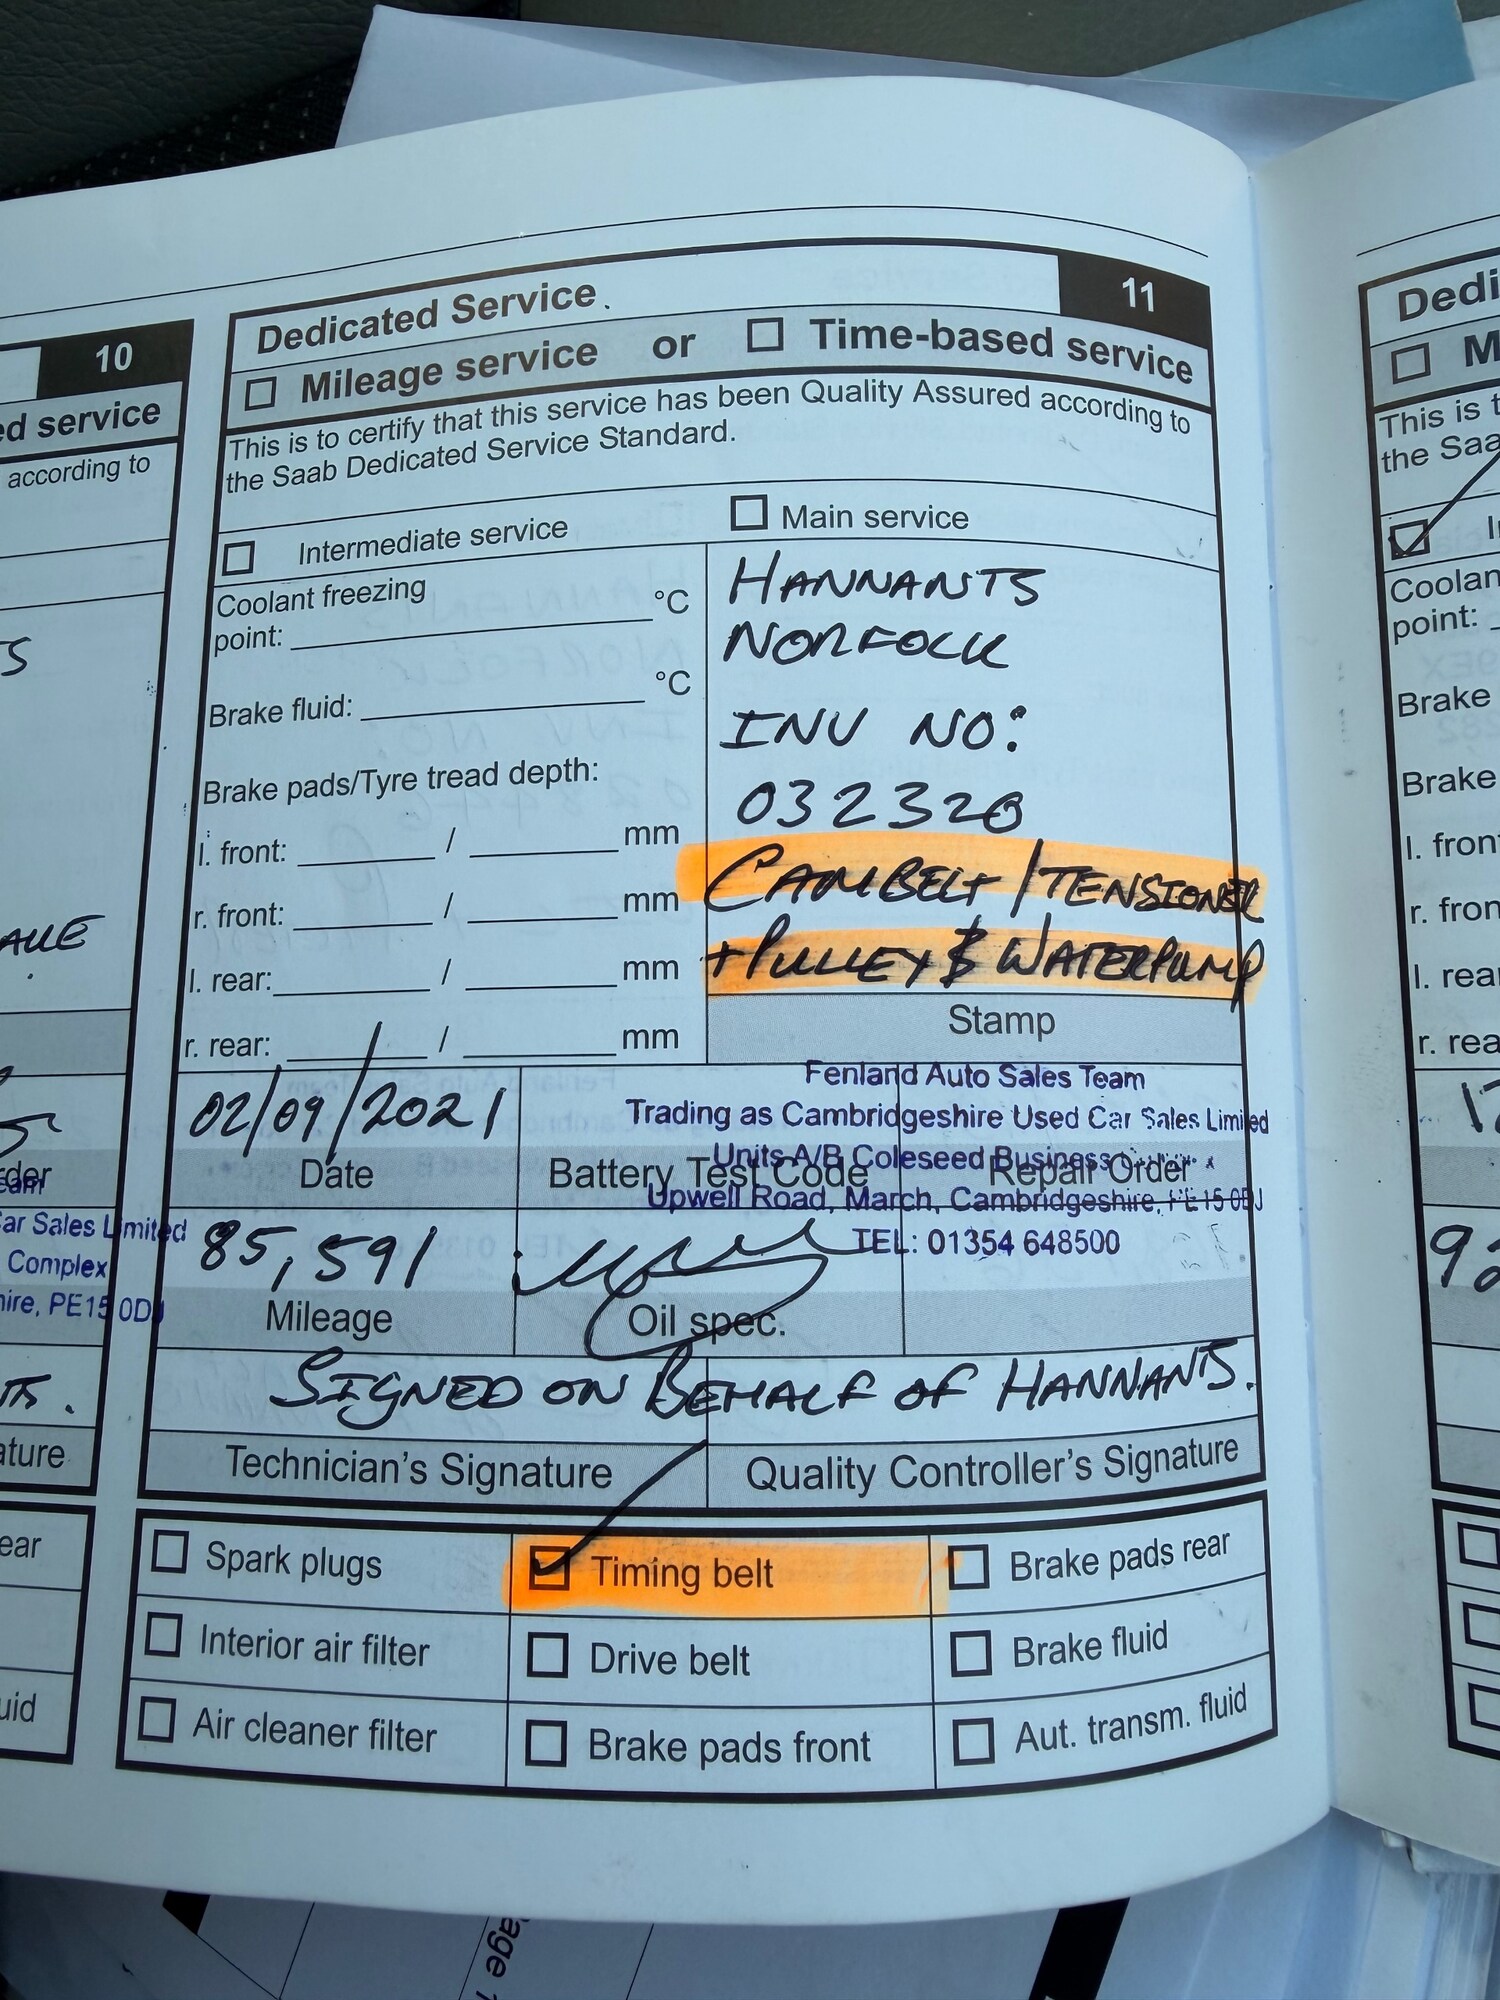 10
ed service
according to
S
AULE
der
eam
Car Sales Limited
Complex
hire, PE15 0DJ
TS.
ature
ear
uid
Dedicated Service.
11
Mileage service or Time-based service
This is to certify that this service has been Quality Assured according to
the Saab Dedicated Service Standard.
Intermediate service
Main service
Coolant freezing
point: °C
Brake fluid: °C
Brake pads/Tyre tread depth:
l. front: / mm
r. front: / mm
l. rear: / mm
r. rear: / mm
HANNANTS
NORFOLK
INV NO:
032320
CAMBELT/TENSIONER
+PULLEY & WATERPUMP
Stamp
Fenland Auto Sales Team
Trading as Cambridgeshire Used Car Sales Limited
Units A/B Coleseed Business
Upwell Road, March, Cambridgeshire, PE15 0DJ
TEL: 01354 648500
02/09/2021
Date
Battery Test Code
Repair Order
85,591
Mileage
Oil spec.
SIGNED ON BEHALF OF HANNANTS.
Technician's Signature
Quality Controller's Signature
Spark plugs
Timing belt
Brake pads rear
Interior air filter
Drive belt
Brake fluid
Air cleaner filter
Brake pads front
Aut. transm. fluid
Dedi
M
This is t
the Saa
I
Coolan
point:
Brake
Brake
l. front
r. fron
l. rea
r. rea
92
age